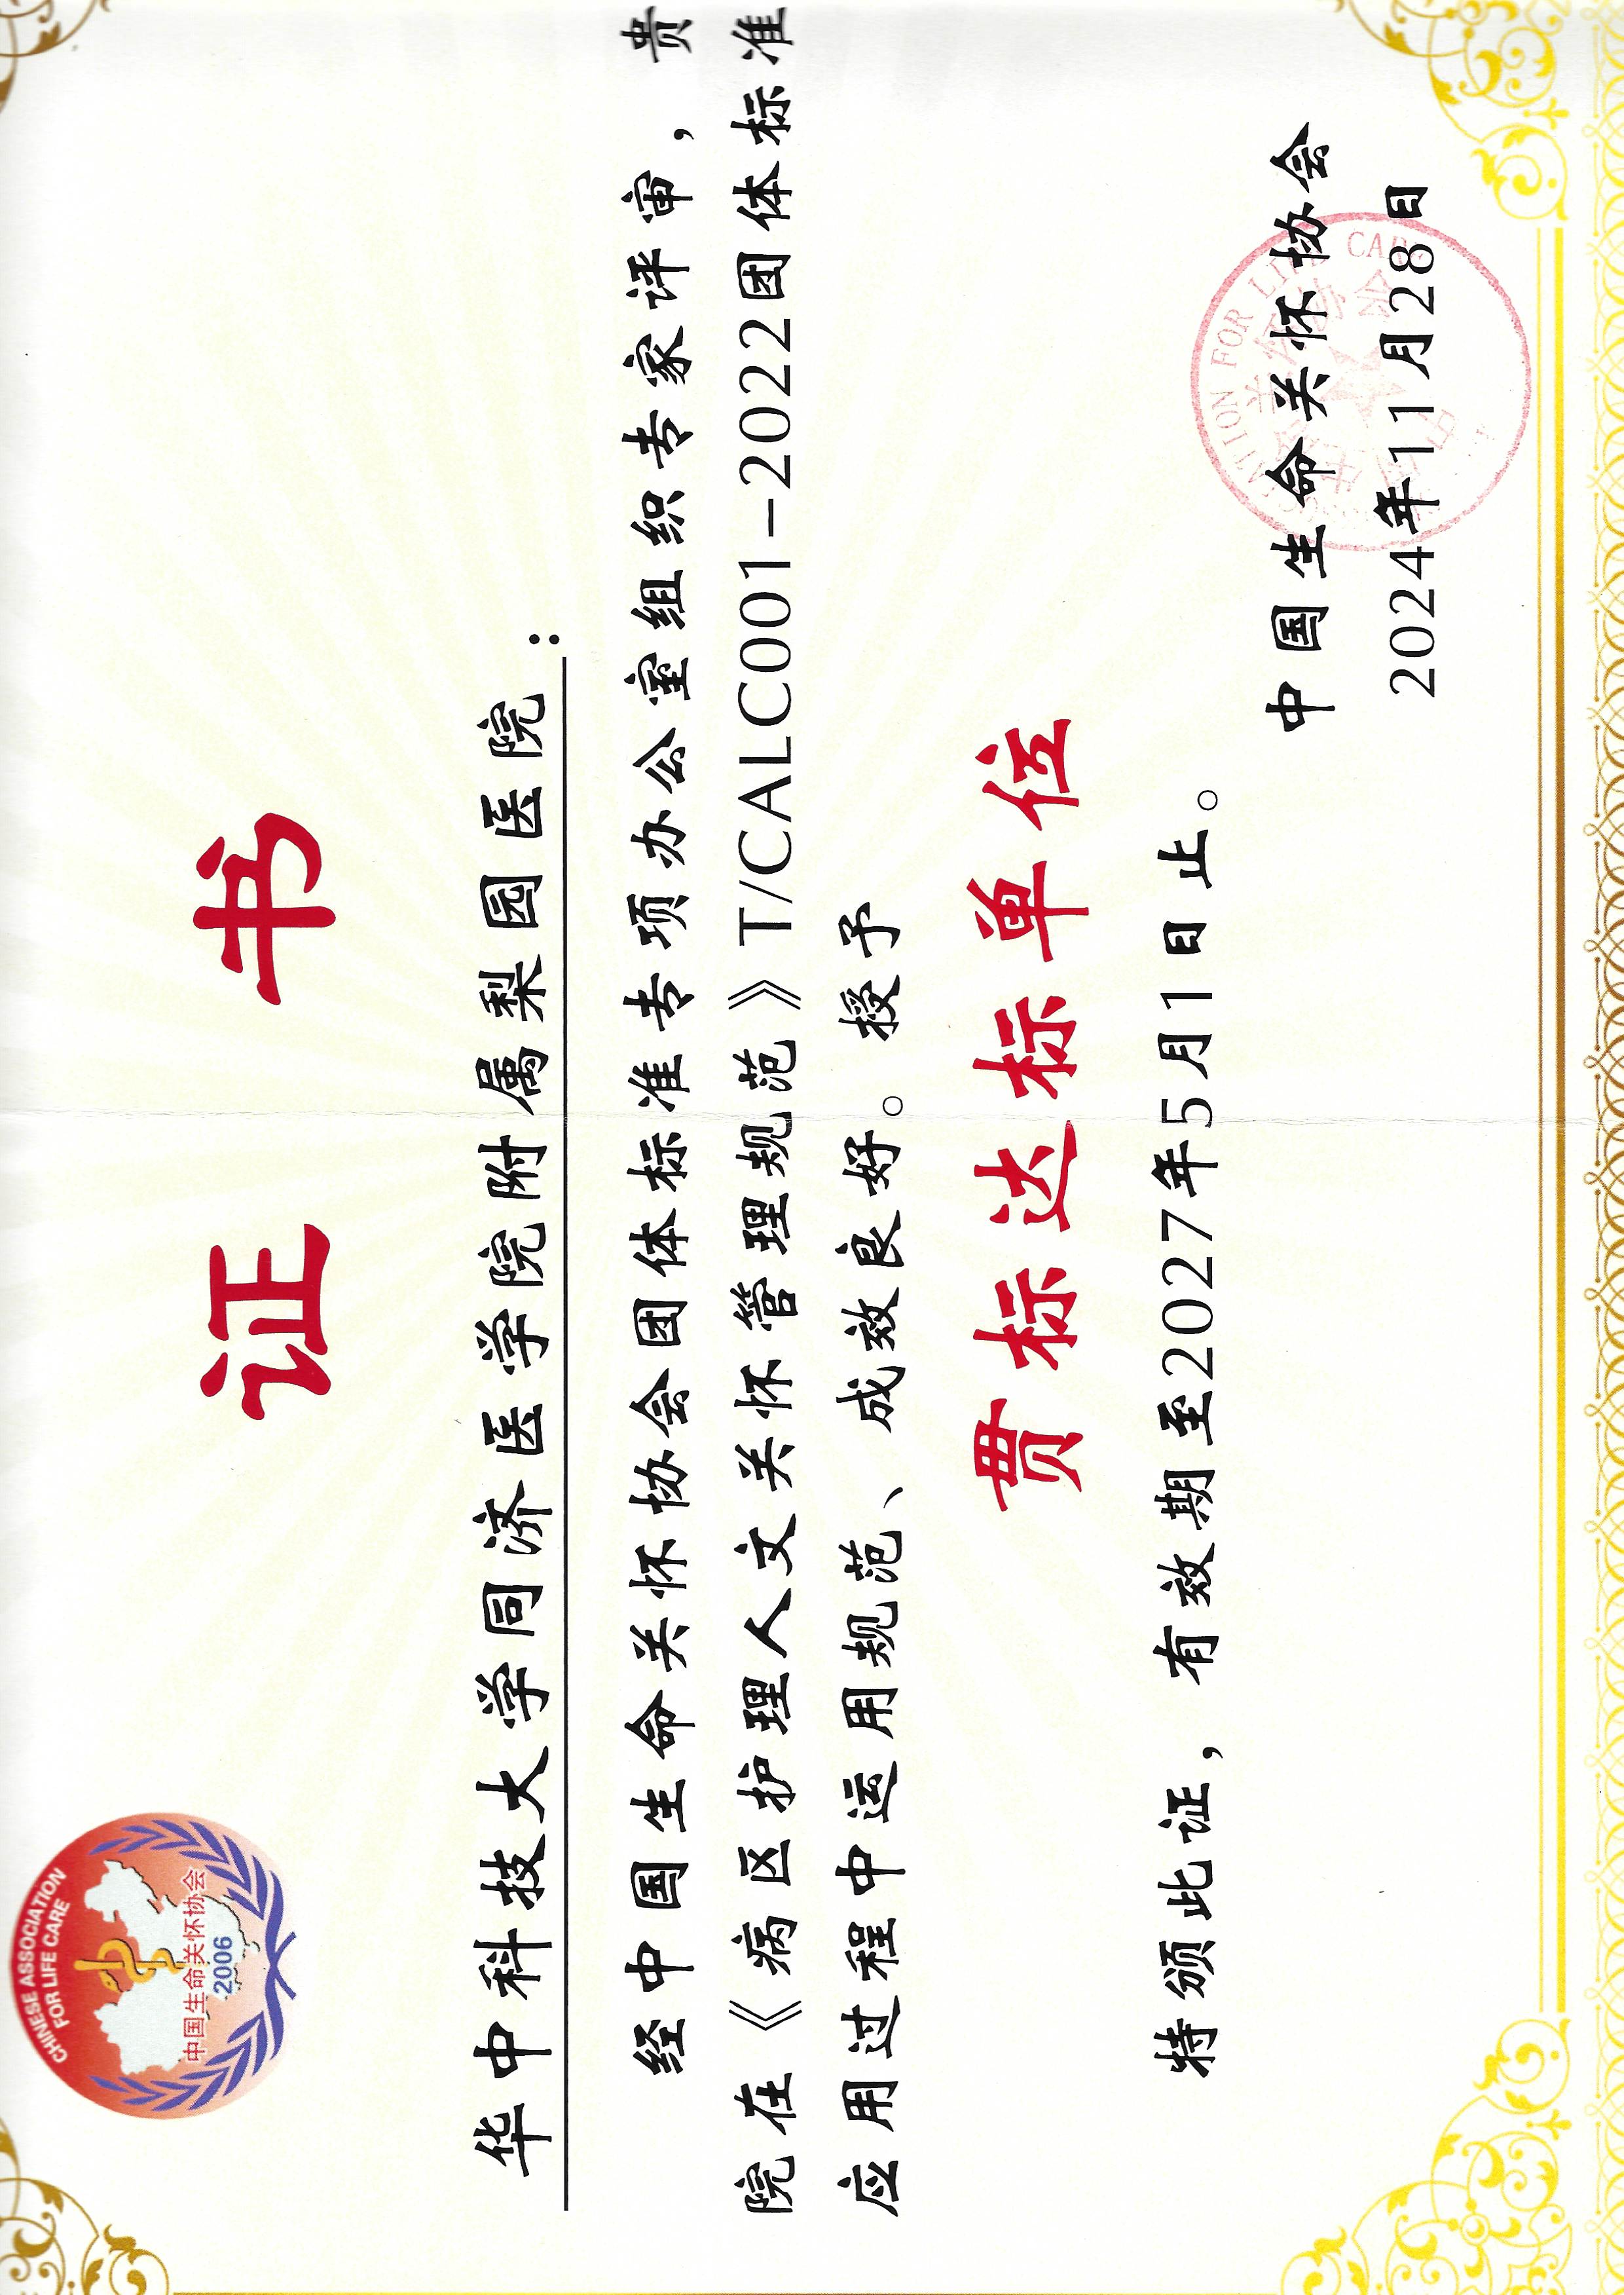 CHINESE ASSOCIATION
FOR LIFE CARE
中国生命关怀协会
2006
证 书
华中科技大学同济医学院附属梨园医院：
经中国生命关怀协会团体标准专项办公室组织专家评审，贵
院在《病区护理人文关怀管理规范》T/CALC001-2022团体标准
应用过程中运用规范、成效良好。授予
贯标达标单位
特颁此证，有效期至2027年5月1日止。
中国生命关怀协会
2024年11月28日
ATION FOR LIFE CARE